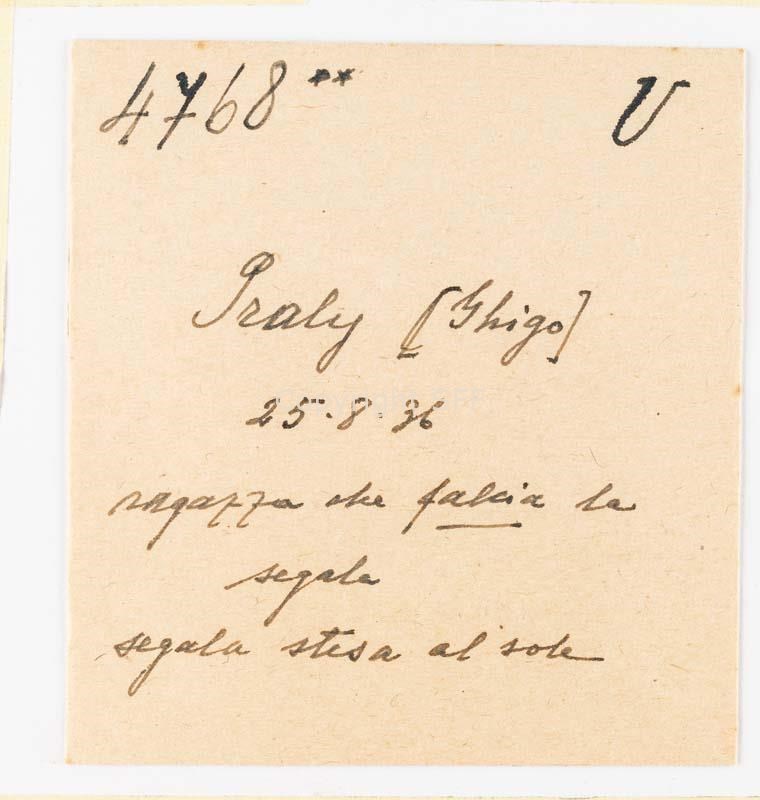 4768** V
Praly [Ghigo]
25.8.36
ragazza che falcia la
segala
segala stesa al sole